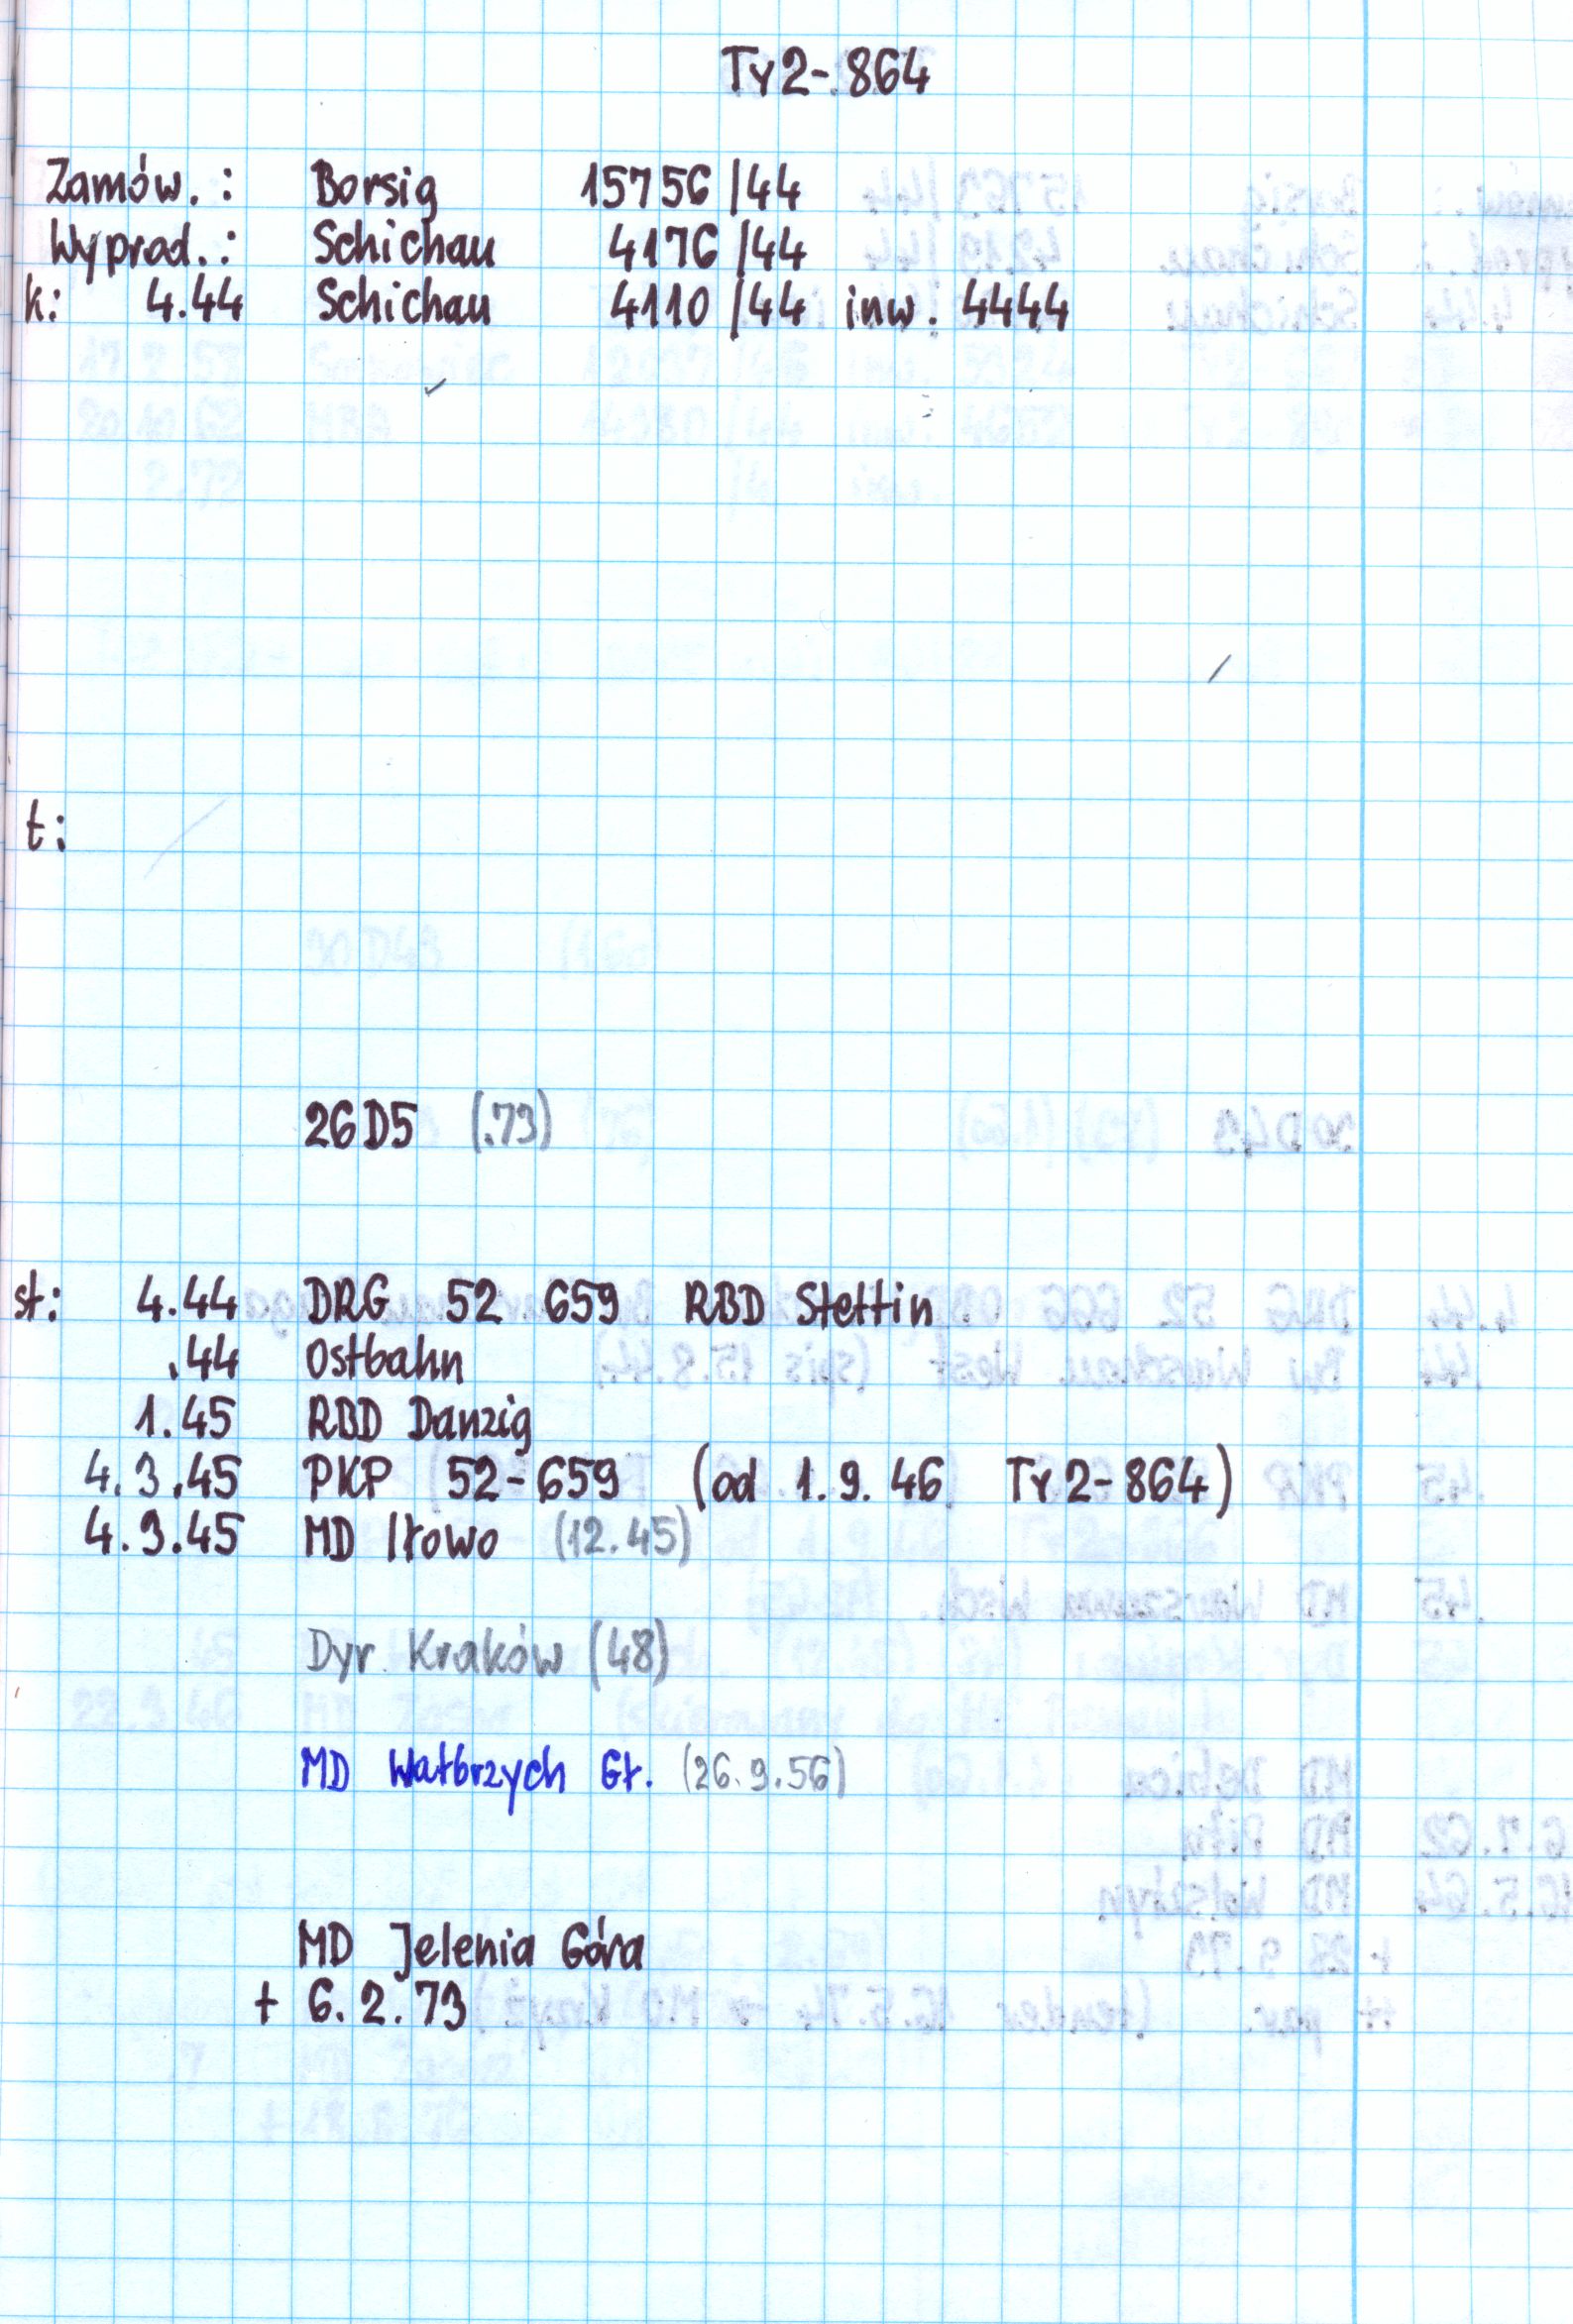 Ty2-864
Zamów.: Borsig 15756/44
Wyprod.: Schichau 4176/44
k: 4.44 Schichau 4110/44 inw. 4444
t:
26D5 (.73)
st: 4.44 DRG 52 659 RBD Stettin
.44 Ostbahn
1.45 RBD Danzig
4.3.45 PKP 52-659 (od 1.9.46 Ty2-864)
4.9.45 MD Iłowo (12.45)
Dyr. Kraków (48)
MD Wałbrzych Gł. (26.9.56)
MD Jelenia Góra
+ 6.2.73